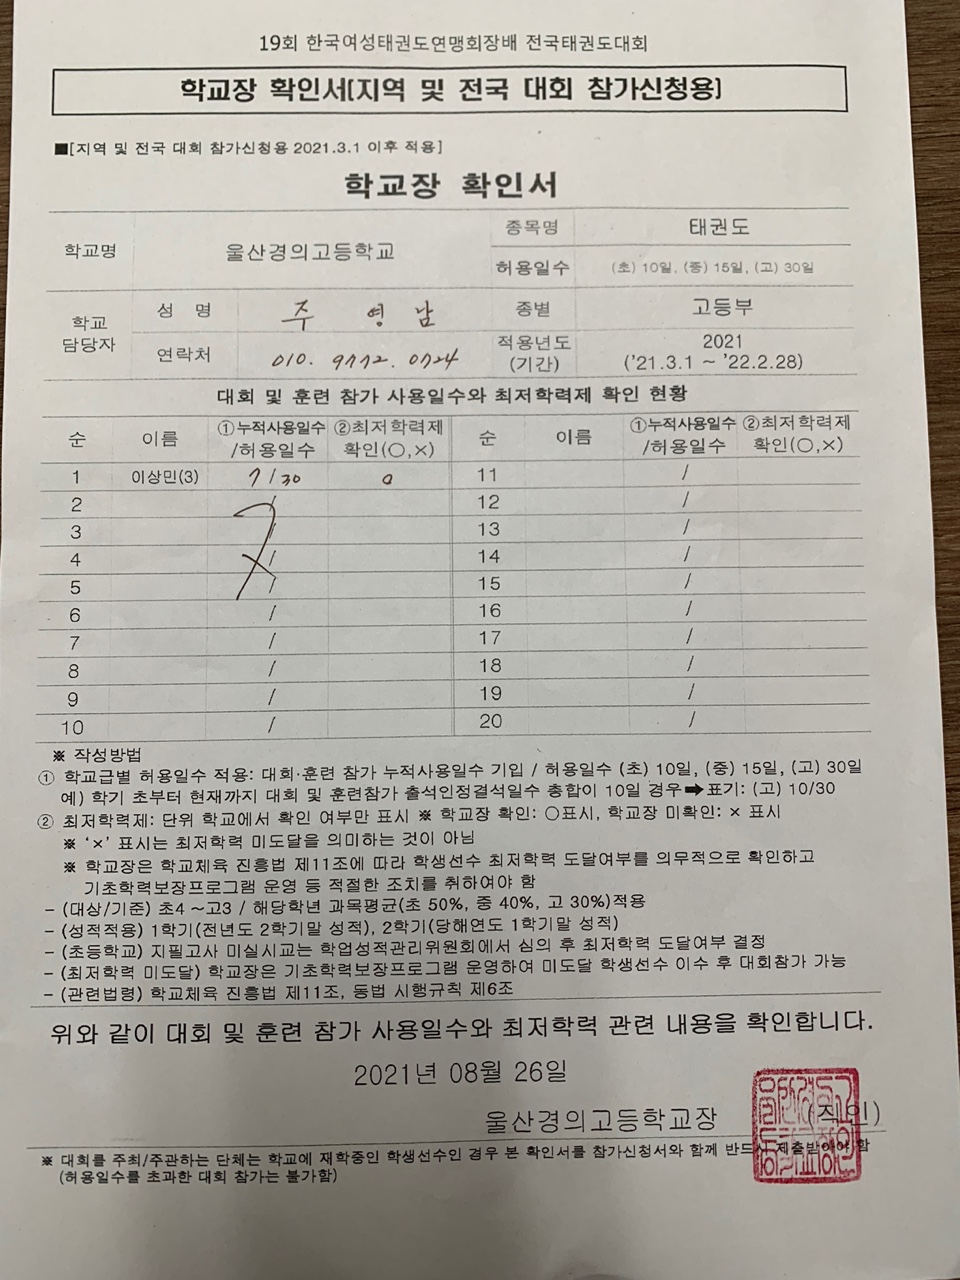 19회 한국여성태권도연맹회장배 전국태권도대회
학교장 확인서[지역 및 전국 대회 참가신청용]
■[지역 및 전국 대회 참가신청용 2021.3.1 이후 적용]
학교장 확인서
학교명 울산경의고등학교 종목명 태권도
허용일수 (초) 10일, (중) 15일, (고) 30일
학교 담당자 성 명 주 영 남 종별 고등부
연락처 010. 9772. 0724 적용년도 (기간) 2021 ('21.3.1 ~ '22.2.28)
대회 및 훈련 참가 사용일수와 최저학력제 확인 현황
순 이름 ①누적사용일수 /허용일수 ②최저학력제 확인(○,×) 순 이름 ①누적사용일수 /허용일수 ②최저학력제 확인(○,×)
1 이상민(3) 7/30 0 11 /
2 / 12 /
3 / 13 /
4 / 14 /
5 / 15 /
6 / 16 /
7 / 17 /
8 / 18 /
9 / 19 /
10 / 20 /
※ 작성방법
① 학교급별 허용일수 적용: 대회·훈련 참가 누적사용일수 기입 / 허용일수 (초) 10일, (중) 15일, (고) 30일
예) 학기 초부터 현재까지 대회 및 훈련참가 출석인정결석일수 총합이 10일 경우➡표기: (고) 10/30
② 최저학력제: 단위 학교에서 확인 여부만 표시 ※ 학교장 확인: ○표시, 학교장 미확인: × 표시
※ '×' 표시는 최저학력 미도달을 의미하는 것이 아님
※ 학교장은 학교체육 진흥법 제11조에 따라 학생선수 최저학력 도달여부를 의무적으로 확인하고
기초학력보장프로그램 운영 등 적절한 조치를 취하여야 함
- (대상/기준) 초4 ~고3 / 해당학년 과목평균(초 50%, 중 40%, 고 30%)적용
- (성적적용) 1학기(전년도 2학기말 성적), 2학기(당해연도 1학기말 성적)
- (초등학교) 지필고사 미실시교는 학업성적관리위원회에서 심의 후 최저학력 도달여부 결정
- (최저학력 미도달) 학교장은 기초학력보장프로그램 운영하여 미도달 학생선수 이수 후 대회참가 가능
- (관련법령) 학교체육 진흥법 제11조, 동법 시행규칙 제6조
위와 같이 대회 및 훈련 참가 사용일수와 최저학력 관련 내용을 확인합니다.
2021년 08월 26일
울산경의고등학교장 (직인)
※ 대회를 주최/주관하는 단체는 학교에 재학중인 학생선수인 경우 본 확인서를 참가신청서와 함께 반드시 제출받아야 함
(허용일수를 초과한 대회 참가는 불가함)